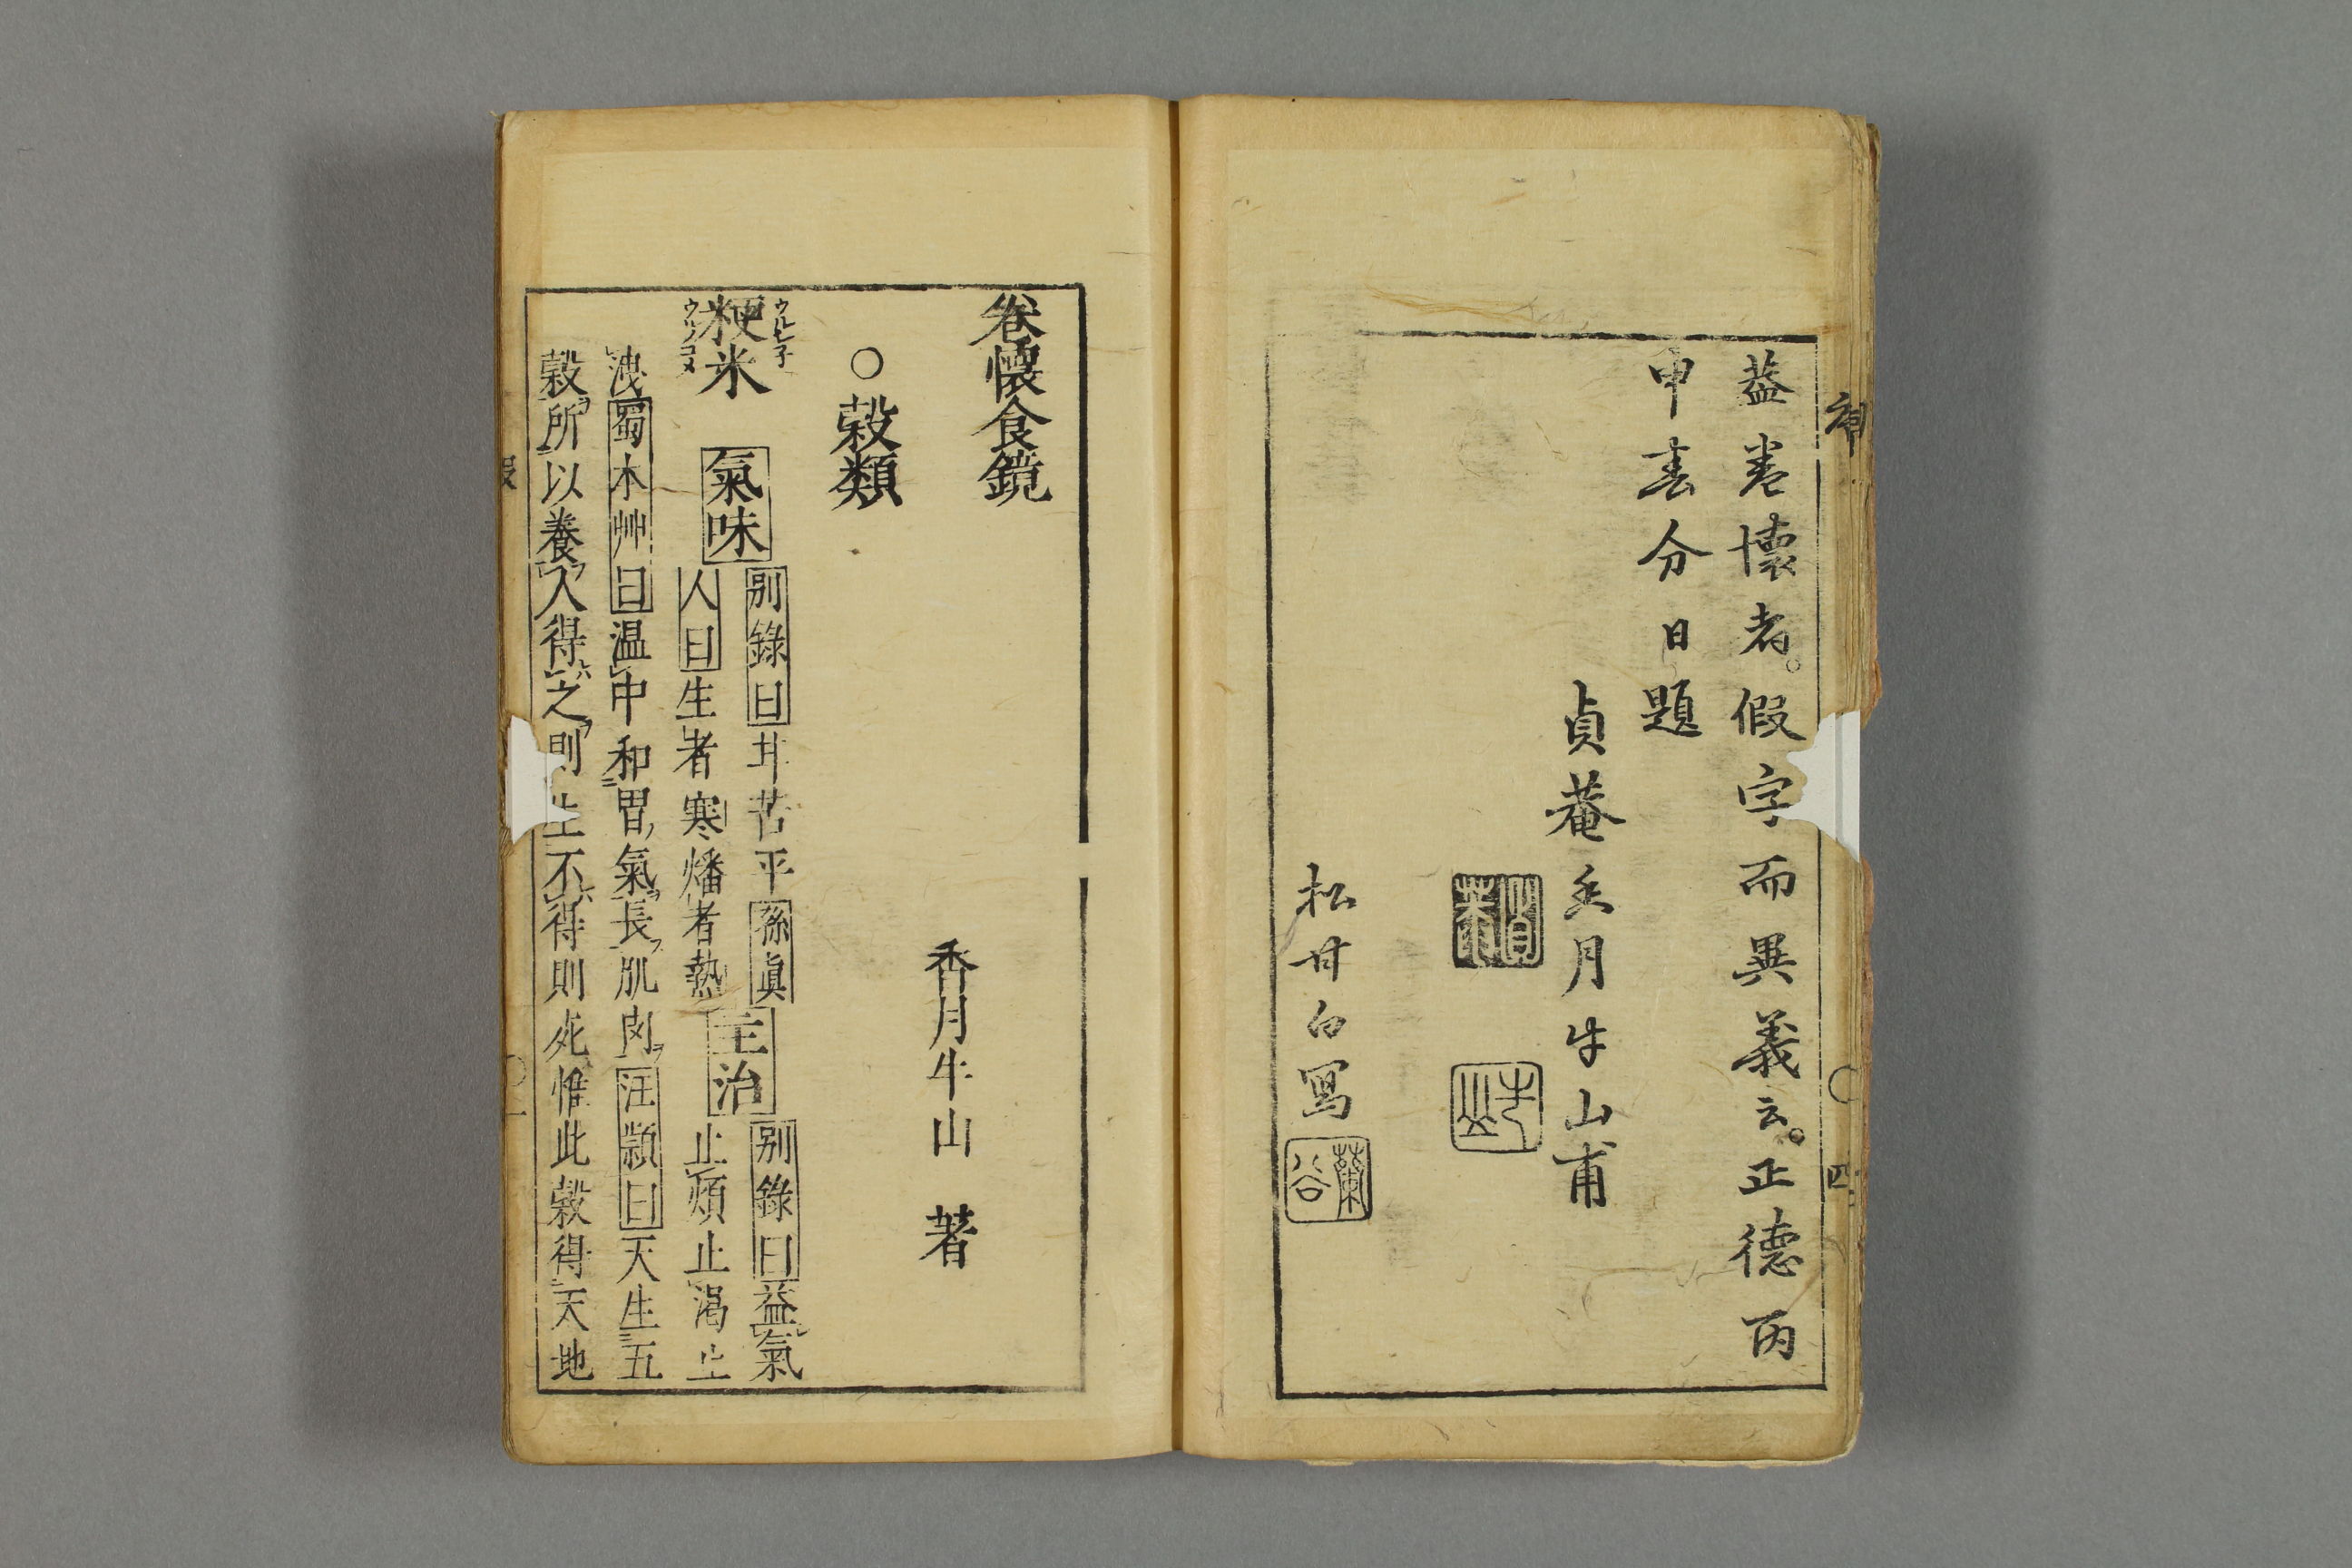 蓋巻懐者。假字而異義云。正德丙
申春分日題
貞菴香月牛山甫
牛山
松井白寫
蘭谷
卷懷食鏡
香月牛山 著
○穀類
粳米 氣味 別錄曰甘苦平孫眞
ウルシ子
ウルノコメ
人曰生者寒燔者熱 主治 別錄曰益氣
止煩止渴止
洩蜀本艸曰温中和胃氣長肌肉汪頴曰天生五
穀所以養人得之則生不得則死惟此穀得天地